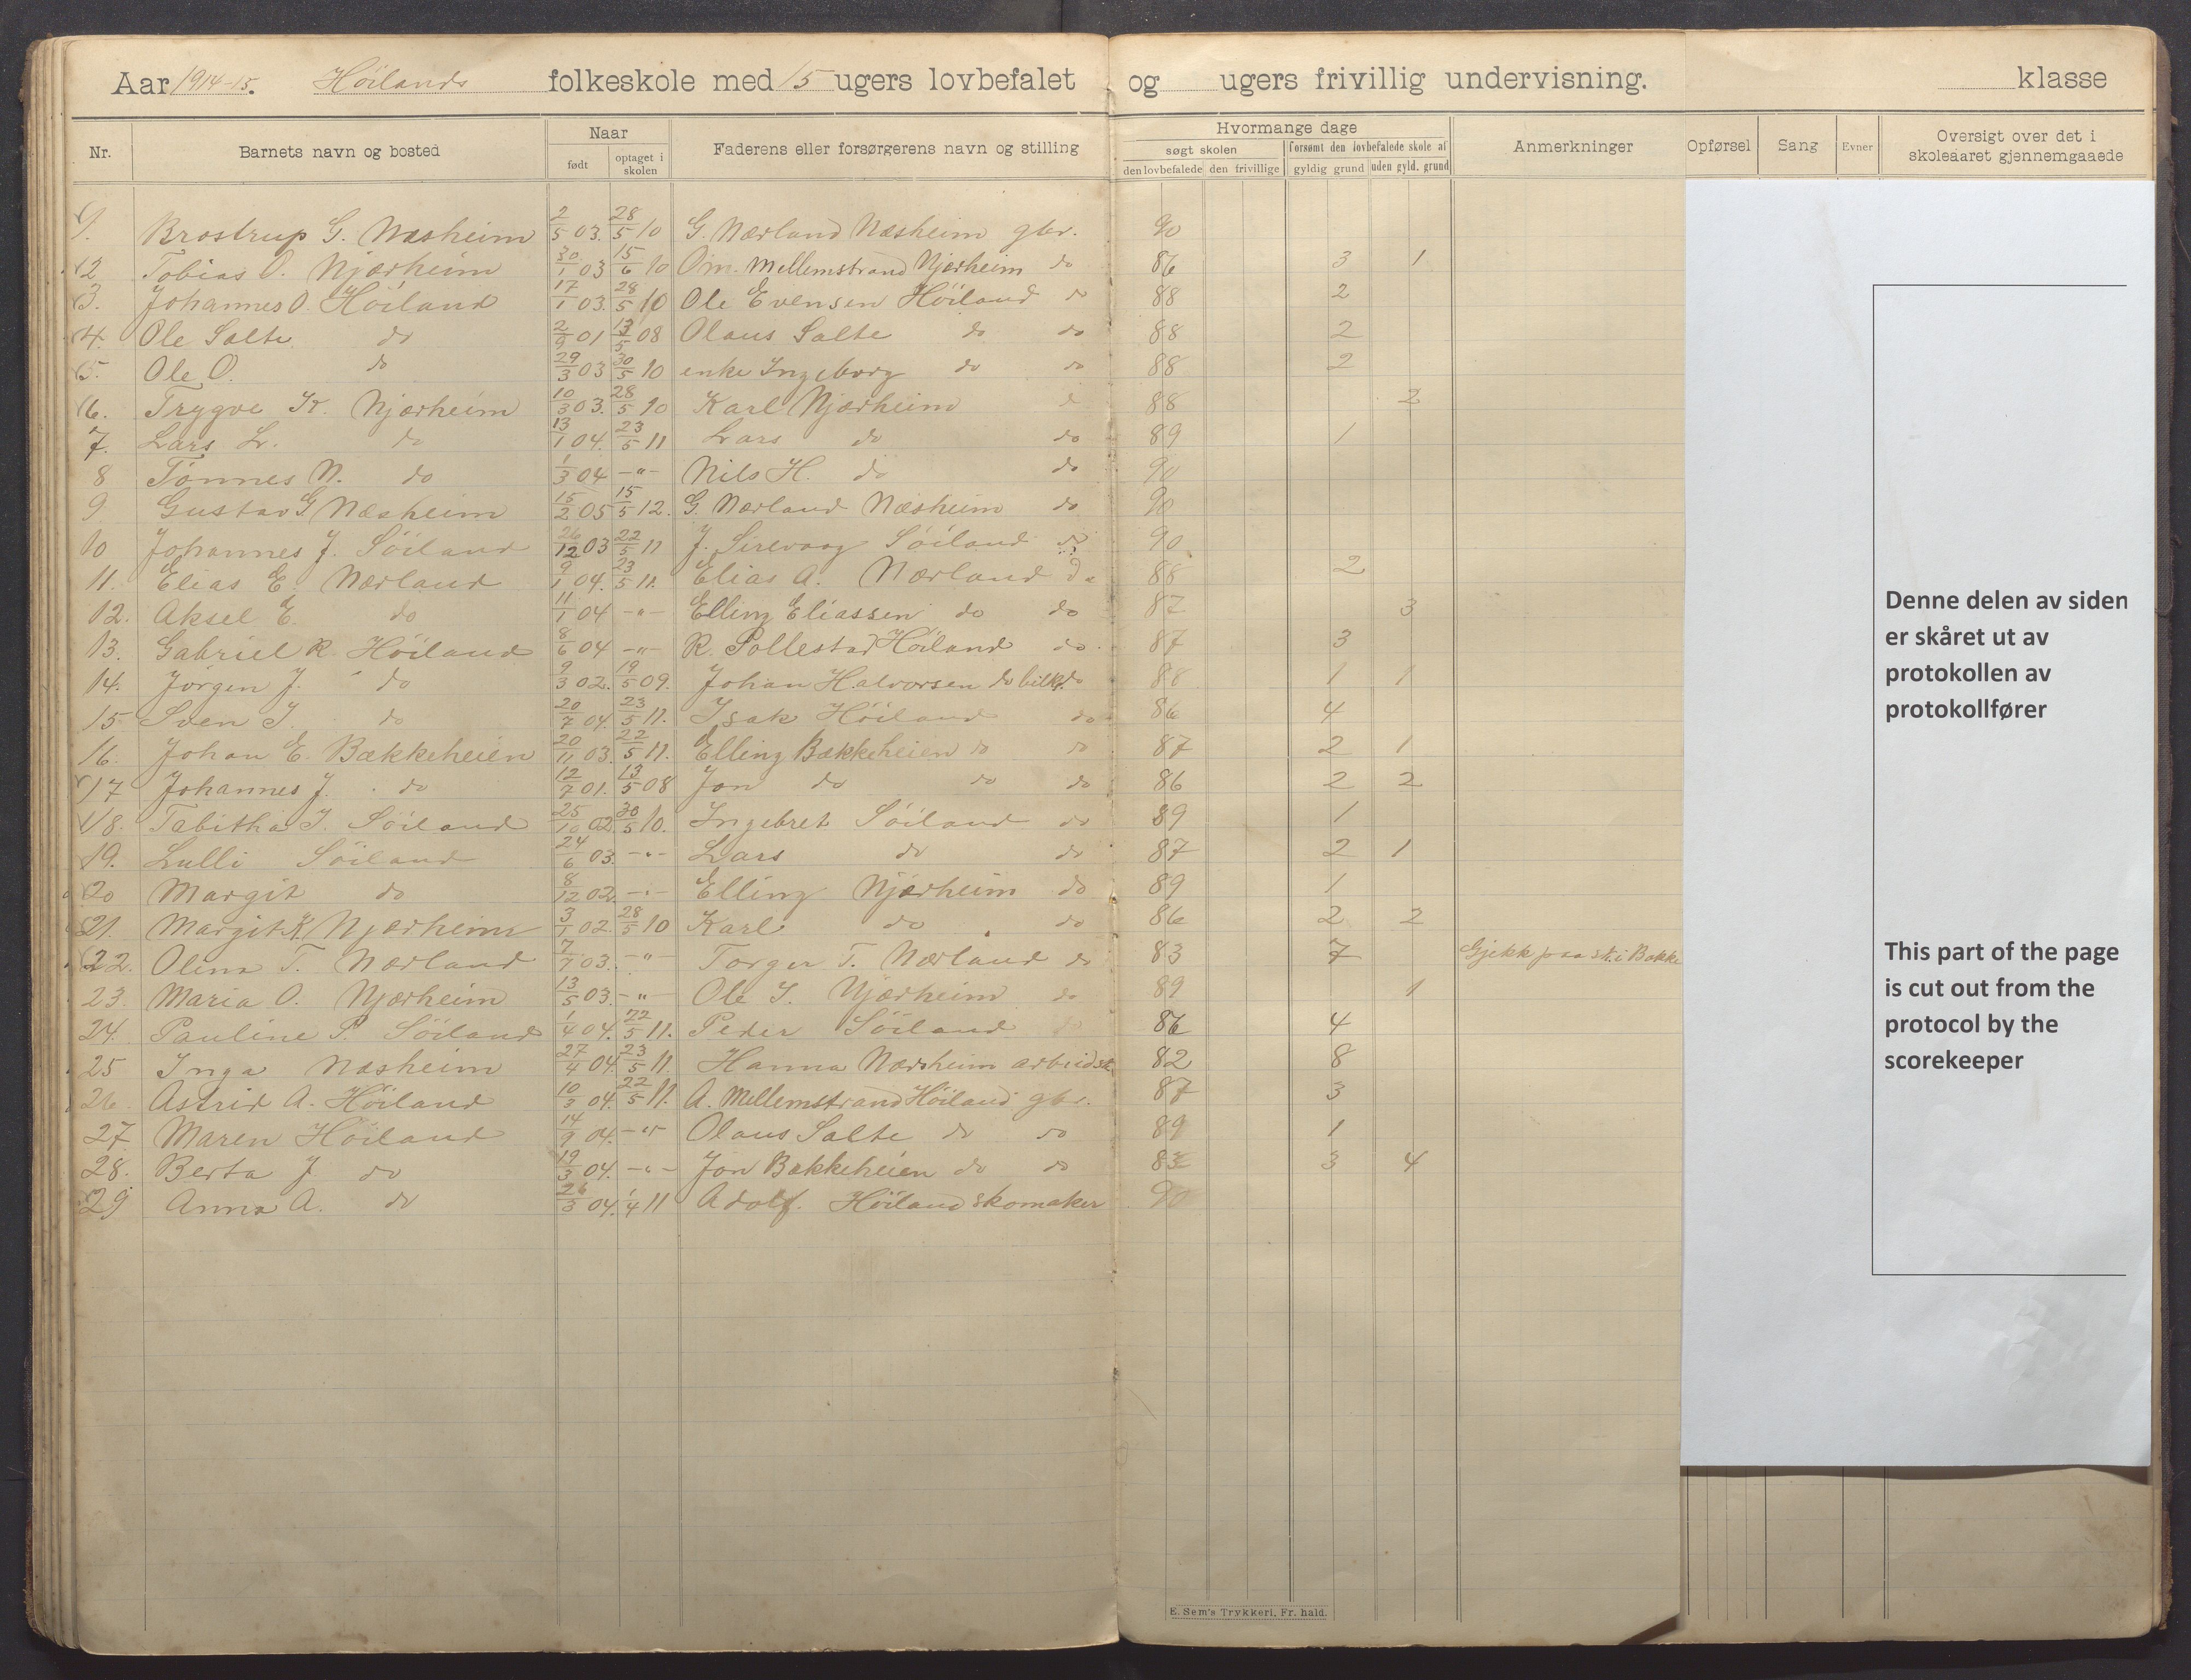 Aar 1914-15. Höilands folkeskole med 15 ugers lovbefalet og ugers frivillig undervisning. klasse
Nr. Barnets navn og bosted Naar født optaget i skolen Faderens eller forsørgerens navn og stilling Hvormange dage søgt skolen den lovbefalede den frivillige forsømt den lovbefalede skole af gyldig grund uden gyld. grund Anmerkninger Opførsel Sang Evner Oversigt over det i skoleaaret gjennemgaaede
1. Brostrup G. Næsheim 2/5 03. 28/5 10 G. Nærland Næsheim gbr. 90
2 Tobias O. Njærheim 30/1 03 15/6 10 Om. Mellemstrand Njærheim do 86 3 1
3. Johannes O. Höiland 17/1 03. 28/5 10 Ole Evensen Höiland do 88 2
4. Ole Salte do 2/9 01 13/5 08 Olaus Salte do do 88 2
5. Ole O. do 29/3 03 30/5 10 enke Ingeborg do do 88 2
6. Trygve K. Njærheim 10/3 03. 28/5 10 Karl Njærheim d 88 2
7. Lars L. do 13/1 04. 23/5 11 Lars do do 89 1
8 Tönnes N. do 1/3 04 -"- Nils H. do do 90
9 Gustav G Næsheim 15/2 05 15/5 12. G. Nærland Næsheim do 90
10 Johannes J. Söiland 26/12 03 22/5 11 J. Sirevaag Söiland do 90
11. Elias E. Nærland 9/1 04. 23/5 11. Elias A. Nærland do 88 2
12. Aksel E. do 11/1 04 -"- Elling Eliassen do do 87 3
13. Gabriel R. Höiland 8/6 04 -"- R. Pollestad Höiland do 87 3
14. Jörgen J. do 9/3 02. 19/5 09. Johan Halvorsen do do 88 1 1
15 Sven I. do 20/7 04. 23/5 11. Isak Höiland do 86 4
16. Johan E. Bækkeheien 20/11 03. 22/5 11. Elling Bækkeheien do do 87 2 1
17 Johannes J. do 12/7 01. 13/5 08 Jon do do do 86 2 2
18. Tabitha I. Söiland 25/10 02 30/5 10. Ingebret Söiland do 89 1
19. Lulli Söiland 24/6 03. -"- Lars do do 87 2 1
20 Margit do 8/12 02. -"- Elling Njærheim do 89 1
21. Margit K. Njærheim 3/1 02. 28/5 10 Karl do do 86 2 2
22. Olena T. Nærland 7/7 03. -"- Torger T. Nærland do 83 7 Gjekk paa sk. i Bakke
23. Maria O. Njærheim 13/5 03. -"- Ole I. Njærheim do 89 1
24. Pauline P. Söiland 1/4 04. 22/5 11. Peder Söiland do 86 4
25 Inga Næsheim 27/4 04. 23/5 11 Hanna Næsheim arbeidsk. 82 8
26. Astrid A. Höiland 10/3 04. 22/5 11. A. Mellemstrand Höiland gbr. 87 3
27 Maren Höiland 14/9 04. -"- Olaus Salte do do 89 1
28. Berta J do 19/3 04. -"- Jon Bækkeheien do do 83 3 4
29 Anna A. do 26/3 04. 1/4 11 Adolf. Höiland skomaker 90
Denne delen av siden
er skåret ut av
protokollen av
protokollfører
This part of the page
is cut out from the
protocol by the
scorekeeper
E. Sem's Trykkeri, Fr. hald.